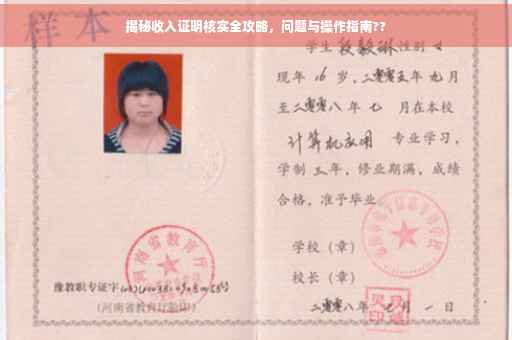 揭秘收入证明核实全攻略，问题与操作指南??
样本
学生 段毅琳 性别 女
现年 16 岁，二零零五年 九 月
至二零零八年 七 月在本校
计算机应用 专业学习，
学制 三 年，修业期满，成绩
合格，准予毕业。
学校（章）
校长（章）
二零零八年 七 月 一 日
河南省教育厅
豫教职专证字
（河南省教育厅验印）